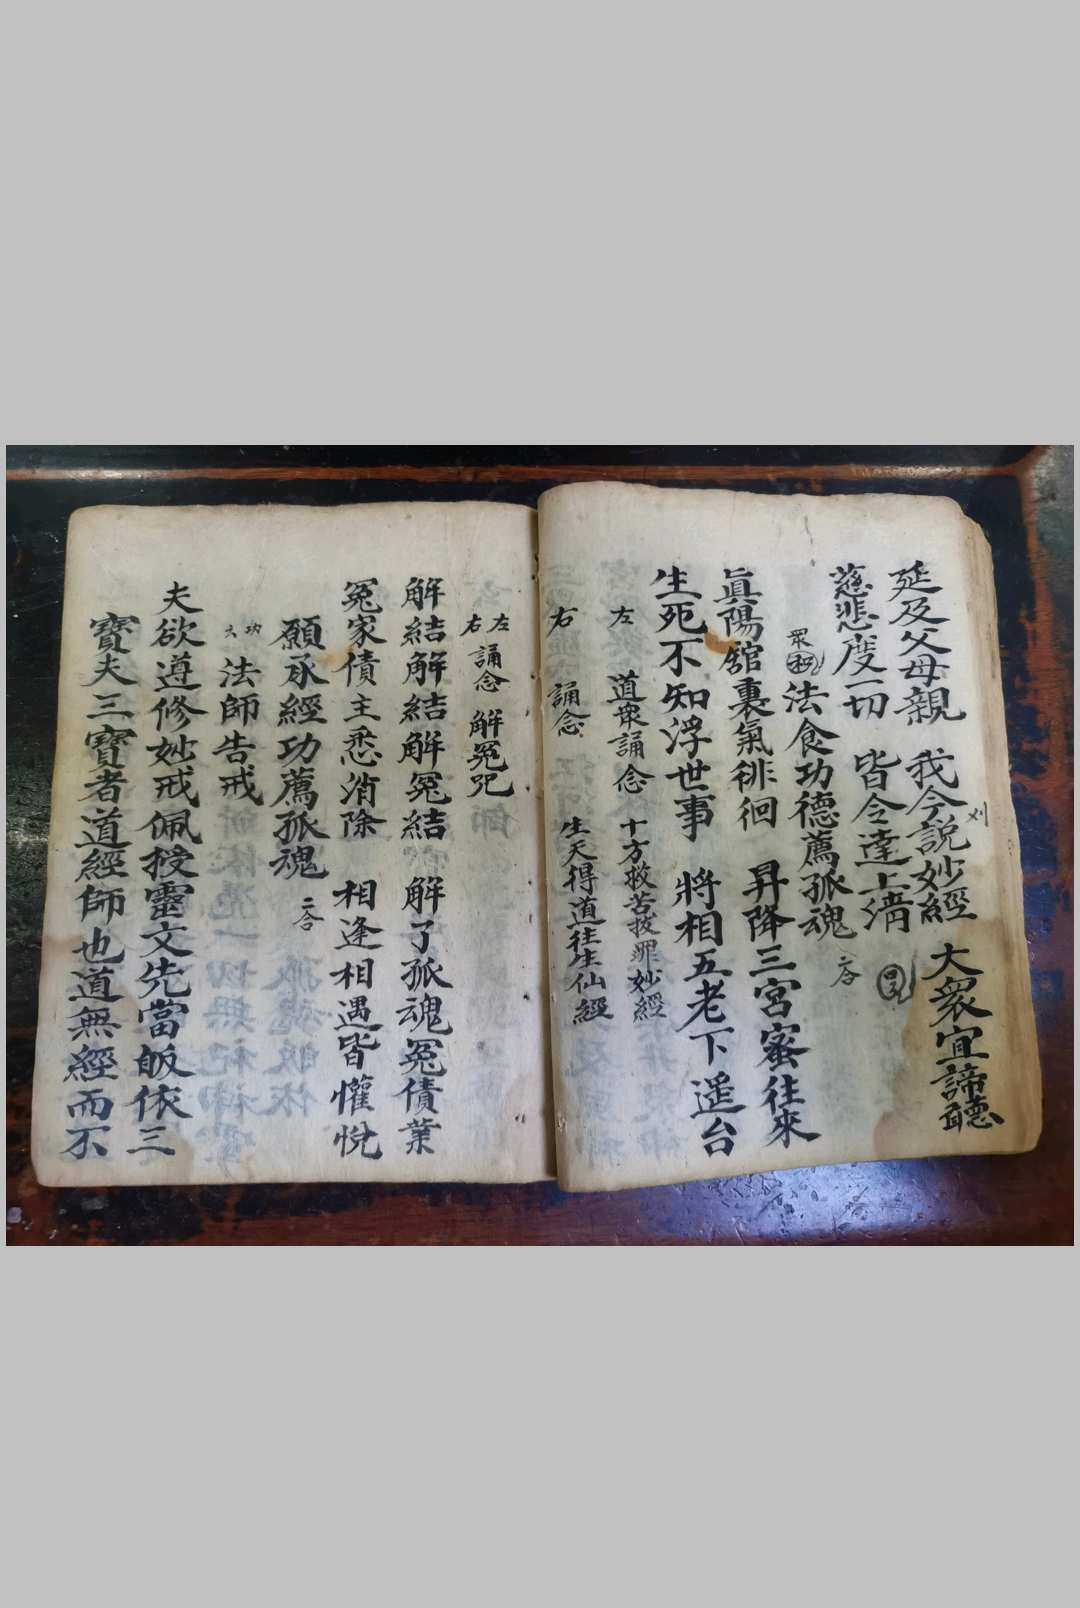 延及父母親 我今説妙經 大衆宜諦聽
慈悲度一切 皆令達上清
衆和 法食功德薦孤魂 二合
眞陽舘裏氣徘徊 昇降三宮蜜往來
生死不知浮世事 將相五老下遥台
左 道衆誦念 十方救苦拔罪妙經
右 誦念 生天得道往生仙經
左右 誦念 解冤咒
解結解結解冤結 解了孤魂冤債業
冤家債主悉消除 相逢相遇皆懽悅
願承經功薦孤魂 二合
功 法師告戒
夫欲遵修妙戒佩授靈文先當皈依三
寶夫三寶者道經師也道無經而不